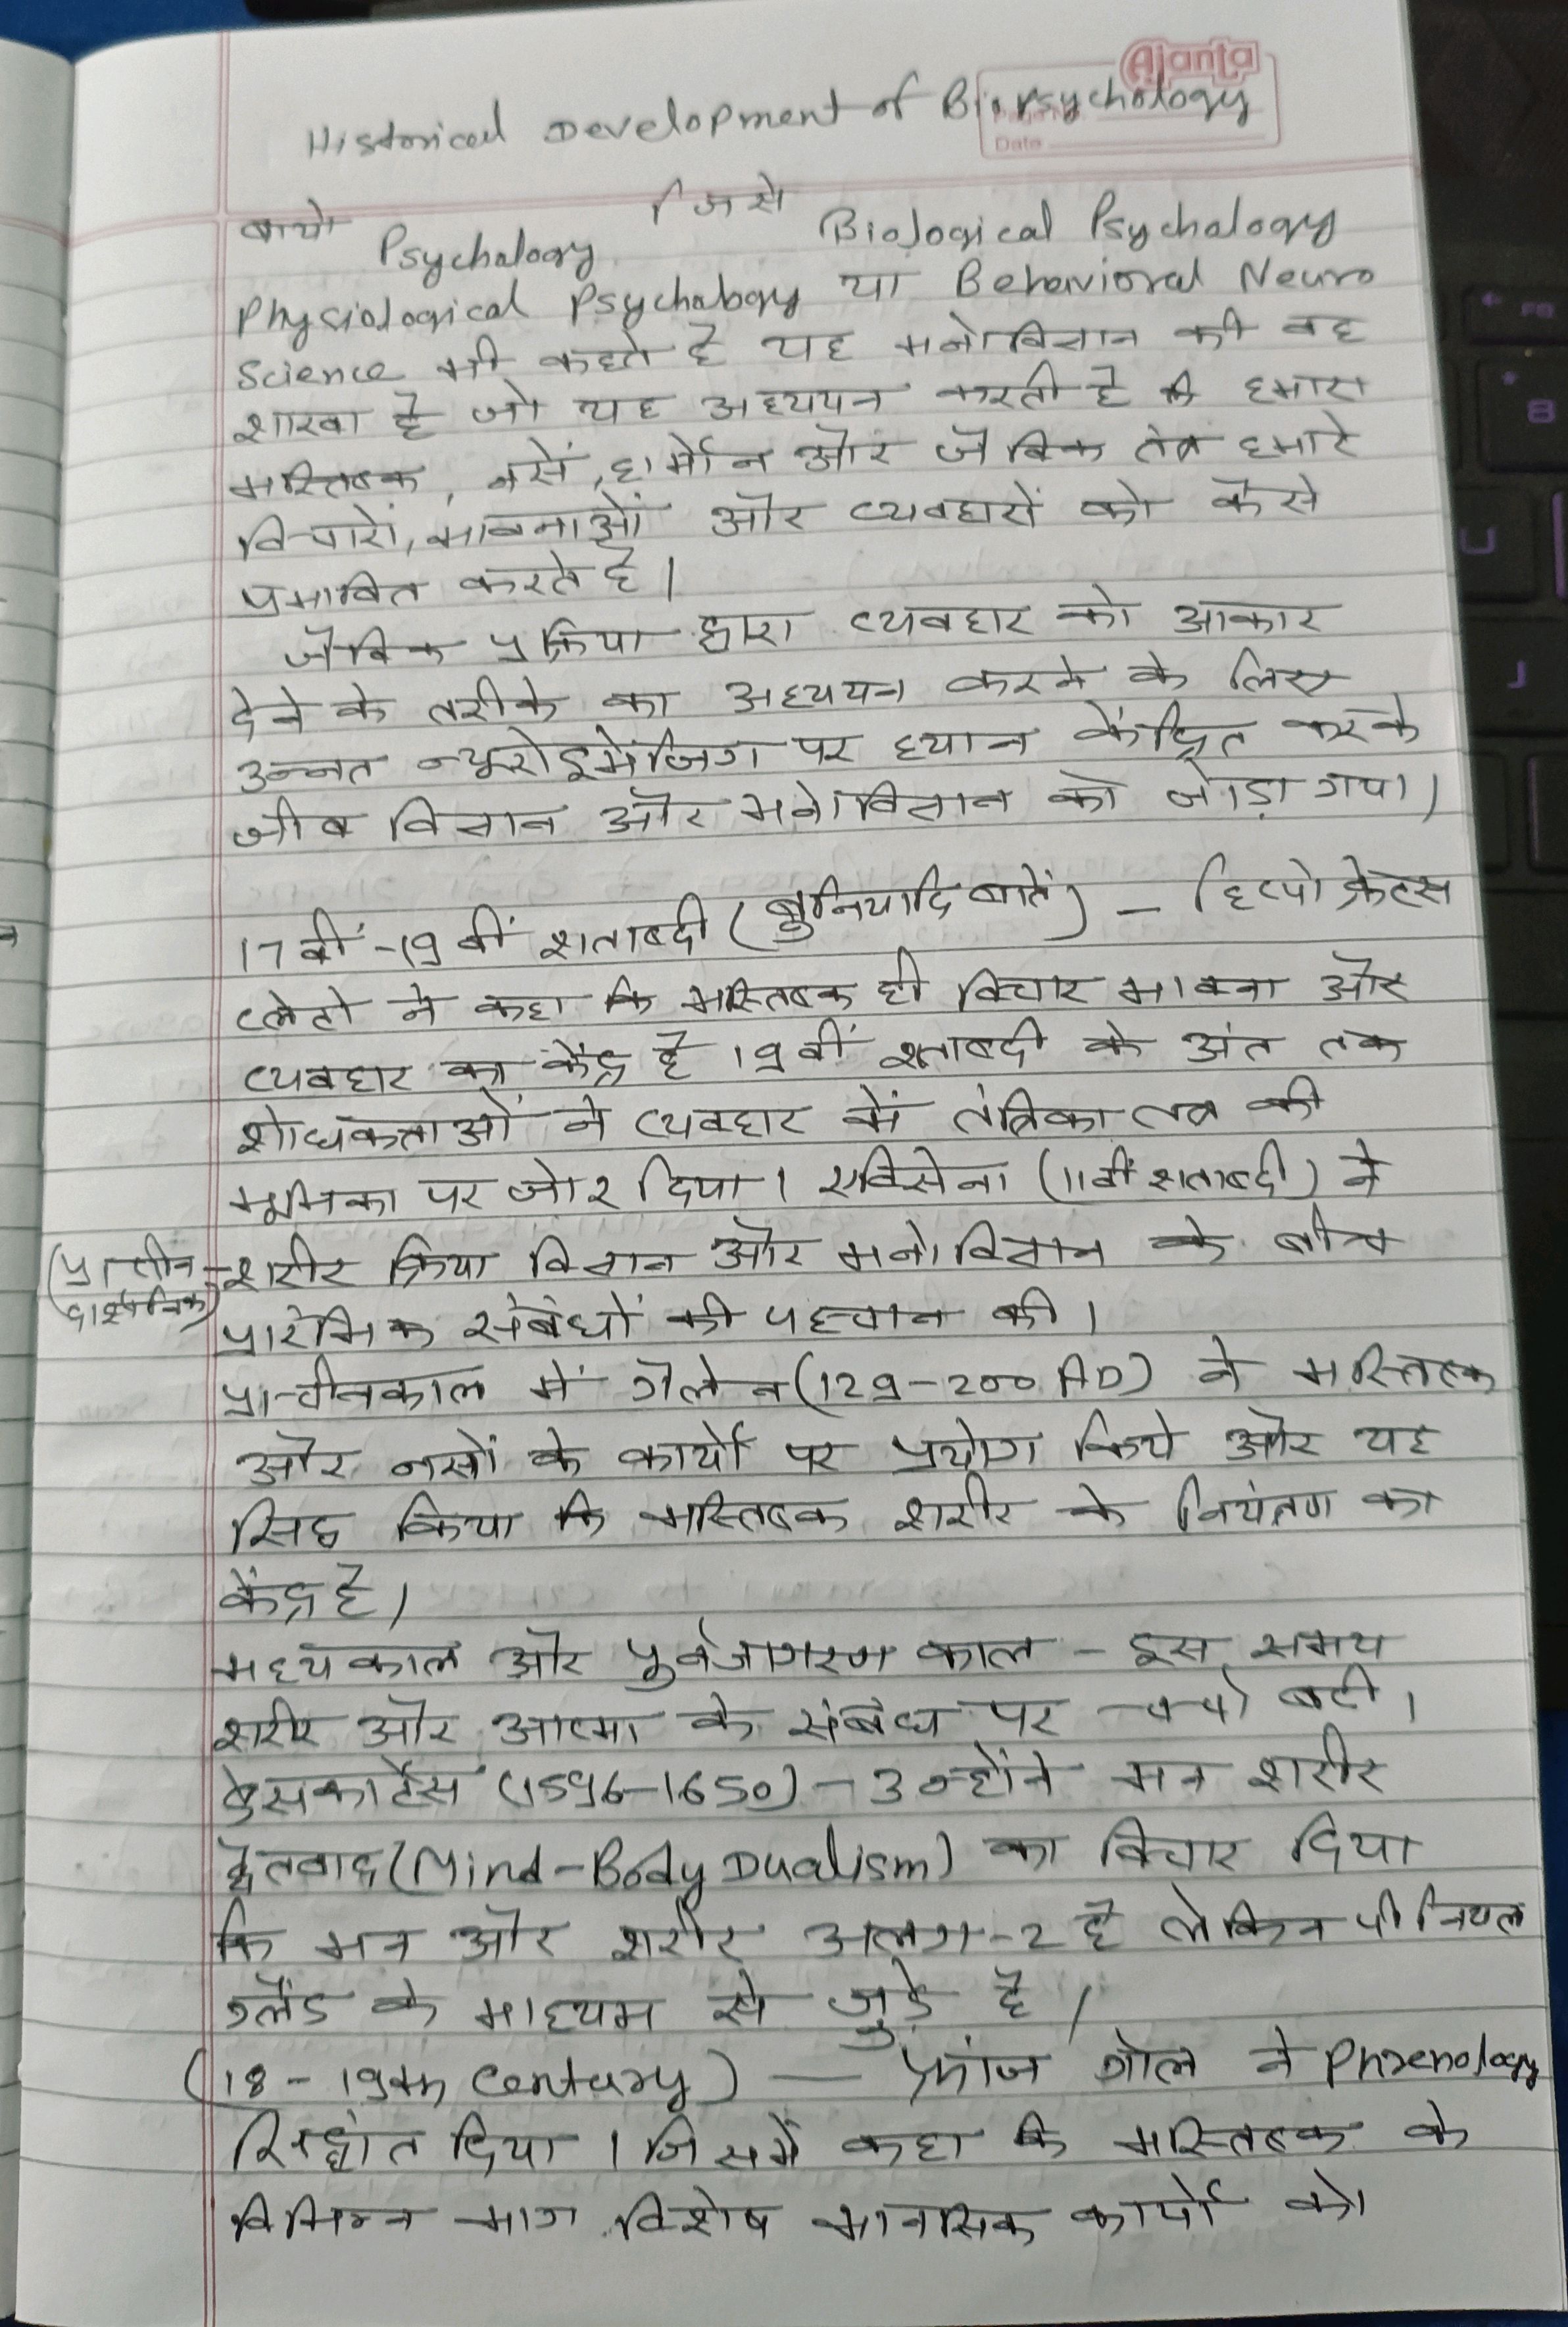 Ajanta
Date
Historical Development of Biopsychology
बायो Psychology जिसे Biological Psychology
Physiological Psychology या Behavioral Neuro
Science भी कहते है यह मनोविज्ञान की वह
शाखा है जो यह अध्ययन करती है कि हमारा
मस्तिष्क, नसें, हार्मोन और जैविक तंत्र हमारे
विचारों, भावनाओं और व्यवहारों को कैसे
प्रभावित करते है।
जैविक प्रक्रिया द्वारा व्यवहार को आकार
देने के तरीके का अध्ययन करने के लिए
उन्नत न्यूरोइमेजिंग पर ध्यान केंद्रित करके
जीव विज्ञान और मनोविज्ञान को जोड़ा गया।
17वीं-19वीं शताब्दी (बुनियादि बातें) - हिप्पोक्रेट्स
प्लेटो ने कहा कि मस्तिष्क ही विचार भावना और
व्यवहार का केंद्र है 19वीं शताब्दी के अंत तक
शोधकर्ताओं ने व्यवहार में तंत्रिका तंत्र की
भूमिका पर जोर दिया। एविसेना (11वीं शताब्दी) ने
(प्राचीन दार्शनिक) शरीर क्रिया विज्ञान और मनोविज्ञान के बीच
प्रारंभिक संबंधों की पहचान की।
प्राचीनकाल में गैलेन (129-200 AD) ने मस्तिष्क
और नसों के कार्यों पर प्रयोग किये और यह
सिद्ध किया कि मस्तिष्क शरीर के नियंत्रण का
केंद्र है।
मध्यकाल और पुर्नजागरण काल - इस समय
शरीर और आत्मा के संबंध पर चर्चा बढी।
डेसकार्टेस (1596-1650) - उन्होंने मन शरीर
द्वैतवाद (Mind-Body Dualism) का विचार दिया
कि मन और शरीर अलग-2 है लेकिन पीनियल
ग्लैंड के माध्यम से जुड़े है।
(18-19th Century) - फ्रांज गॉल ने Phrenology
सिद्धांत दिया। जिसमें कहा कि मस्तिष्क के
विभिन्न भाग विशेष मानसिक कार्यों को